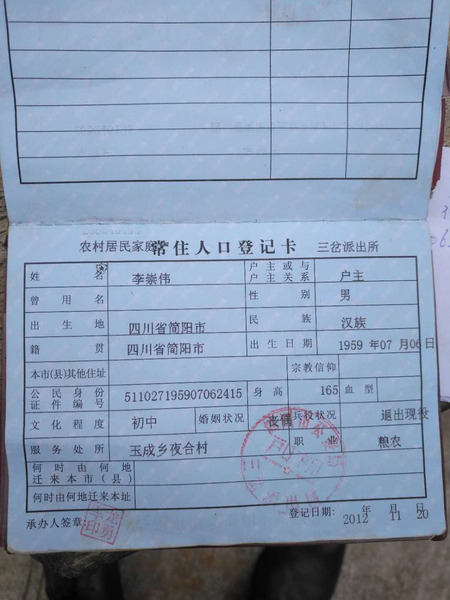 农村居民家庭 常住人口登记卡 三岔派出所
姓 名 李崇伟 户主或与户主关系 户主
曾用名 性 别 男
出生地 四川省简阳市 民 族 汉族
籍 贯 四川省简阳市 出生日期 1959 年 07 月 06 日
本市(县)其他住址 宗教信仰
公民身份证件编号 511027195907062415 身高 165 血型
文化程度 初中 婚姻状况 丧偶 兵役状况 退出现役
服务处所 玉成乡夜合村 职 业 粮农
何时由何地迁来本市(县)
何时由何地迁来本址
承办人签章: 登记日期: 2012 年 11 月 20 日